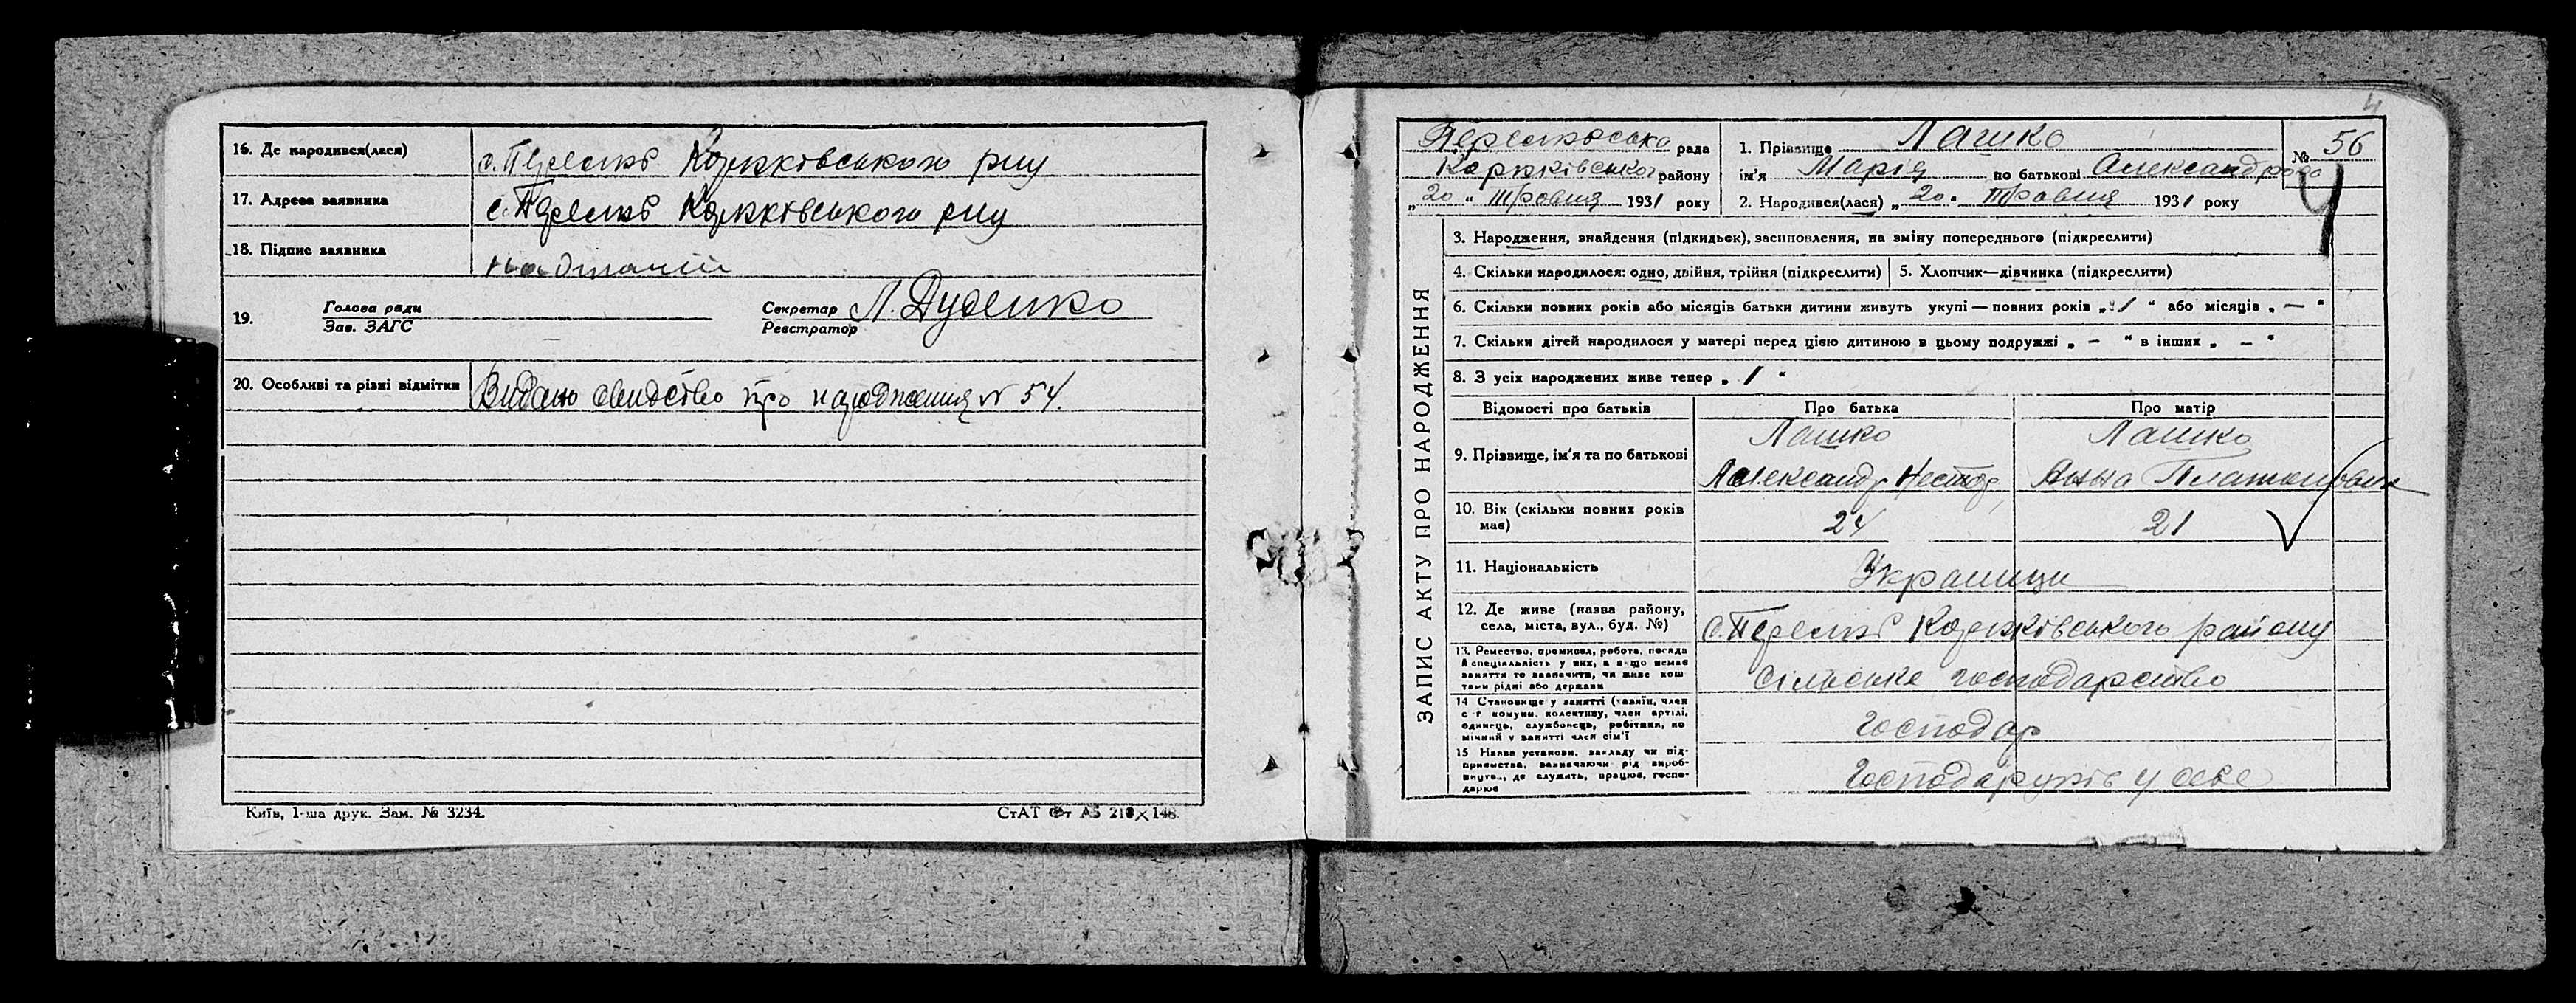 16. Де народився(лася) с. Перелюб Корюківського р-ну
17. Адреса заявника с. Перелюб Корюківського р-ну
18. Підпис заявника
19. Голова ради
Зав. ЗАГС
Секретар
Реєстратор
Л. Дуденко
20. Особливі та різні відмітки Видано свидоство про народження № 54.
Київ, 1-ша друк. Зам. № 3234.
СтАТ Фт А5 210×148.
4
рада
Корюківського району
„20“ Травня 1931 року
1. Прізвище Лашко
ім'я Марія по батькові Александрова
2. Народився(лася) „20. Травня 1931 року
№ 56
ЗАПИС АКТУ ПРО НАРОДЖЕННЯ
3. Народження, знайдення (підкидьок), засиновлення, на зміну попереднього (підкреслити)
4. Скільки народилося: одно, двійня, трійня (підкреслити)
5. Хлопчик—дівчинка (підкреслити)
6. Скільки повних років або місяців батьки дитини живуть укупі — повних років „ 1 “ або місяців „ — “
7. Скільки дітей народилося у матері перед цією дитиною в цьому подружжі „ — “ в інших „ — “
8. З усіх народжених живе тепер „ 1 “
Відомості про батьків Про батька Про матір
9. Прізвище, ім'я та по батькові
Лашко
Александр Нестор
Лашко
Анна Платоновна
10. Вік (скільки повних років
має)
24
21
11. Національність Українци
12. Де живе (назва району,
села, міста, вул., буд. №)
с. Перелюб Корюківського району
13. Ремество, промисел, робота, посада
й спеціальність у них, а якщо немає
заняття то зазначити, чи живе кош
тами рідні або держави
Сільське господарство
14 Становище у занятті (хазяїн, член
с.-г. комуни, колективу, член артілі,
одинець, службовець, робітник, по
мічний у занятті член сім'ї
Господар
15 Назва установи, закладу чи під-
приємства, зазначаючи рід вироб-
ництв., де служить, працює, госпо-
дарює
у себе